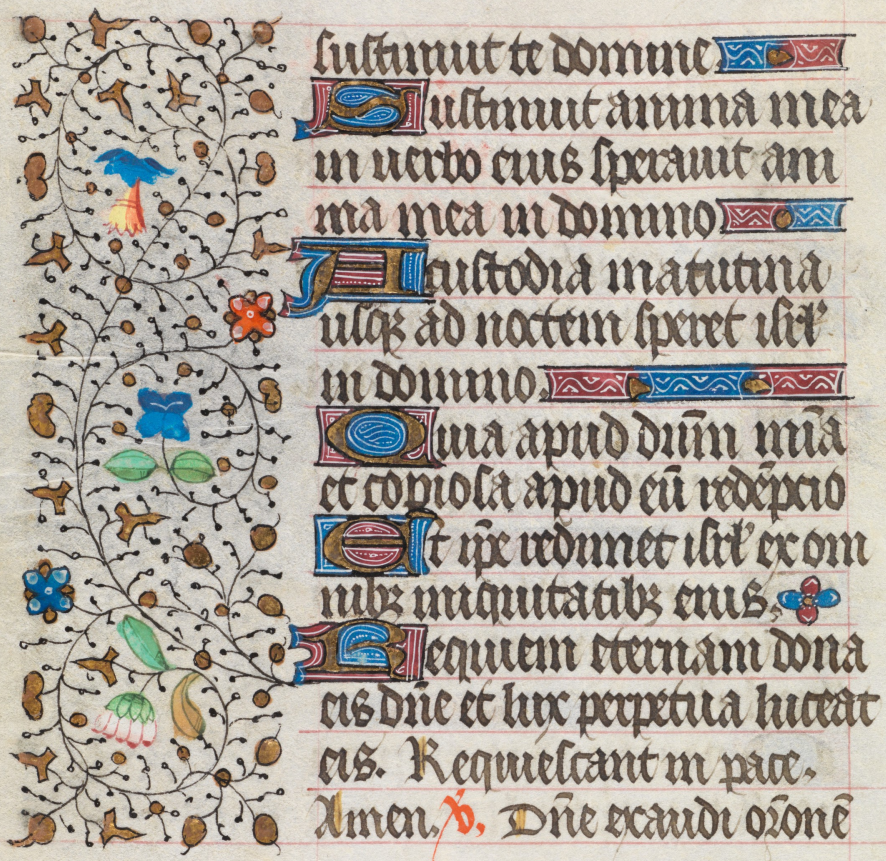 sustinuit te domine
Sustinuit anima mea
in uerbo eius sperauit ani
ma mea in domino
A custodia matutina
usq; ad noctem speret isrl'
in domino.
Quia apud dn̄m mīa
et copiosa apud eū redēpcio
Et ip̄e redimet isrl' ex om
nibꝫ iniquitatibꝫ eius.
Requiem eternam dona
eis dn̄e et lux perpetua luceat
eis. Requiescant in pace.
Amen. ℣. Dn̄e exaudi or̄onē